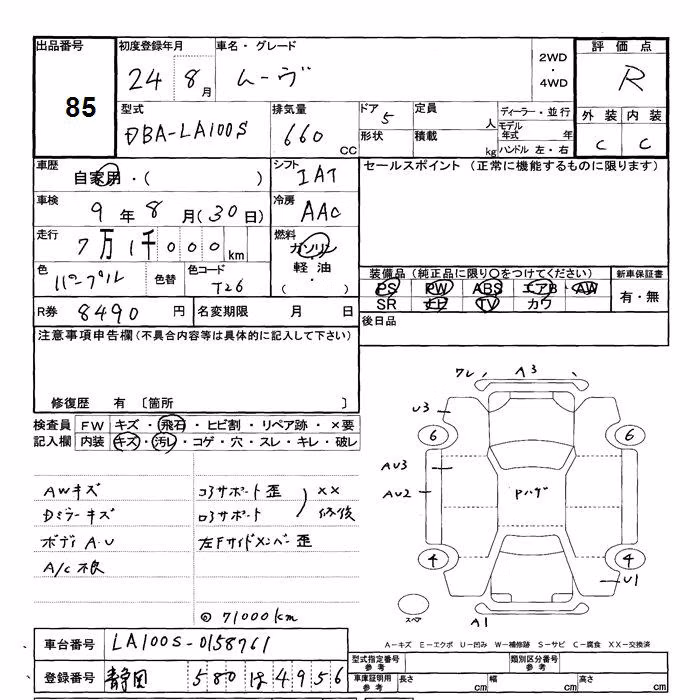 出品番号 初度登録年月 車名・グレード 2WD・4WD 評価点
85 24 8月 ムーヴ R
型式 排気量 ドア 定員 ディーラー・並行 外装 内装
DBA-LA100S 660CC 5 人 モデル年式 年 C C
形状 積載 kg ハンドル 左・右
車歴 自家用・( ) シフト IAT セールスポイント (正常に機能するものに限ります)
車検 9年8月(30日) 冷房 AAC
走行 7万1千000km 燃料 ガソリン
軽油
( )
色 パープル 色替 色コード T26 装備品 (純正品に限り○をつけてください) 新車保証書
PS PW ABS エアB AW 有・無
SR ナビ TV カワ
R券 8490円 名変期限 月 日 後日品
注意事項申告欄(不具合内容等は具体的に記入して下さい)
修復歴 有 〔箇所 〕
検査員 FW キズ・飛石・ヒビ割・リペア跡・×要
記入欄 内装 キズ・汚レ・コゲ・穴・スレ・キレ・破レ
ワレ A3
U3
6 6
AU3
AU2 Pハゲ
4 4
U1
スペア A1
AWキズ コアサポート歪 ××
Dミラーキズ ロアサポート 修復
ボディA・U 左Fサイドメンバー歪
A/C不良
◎71000km
A-キズ E-エクボ U-凹み W-補修跡 S-サビ C-腐食 XX-交換済
車台番号 LA100S-0158761 型式指定番号 参考 類別区分番号 参考
登録番号 静岡 580 4956 車庫証明用 参考 長さ cm 幅 cm 高さ cm